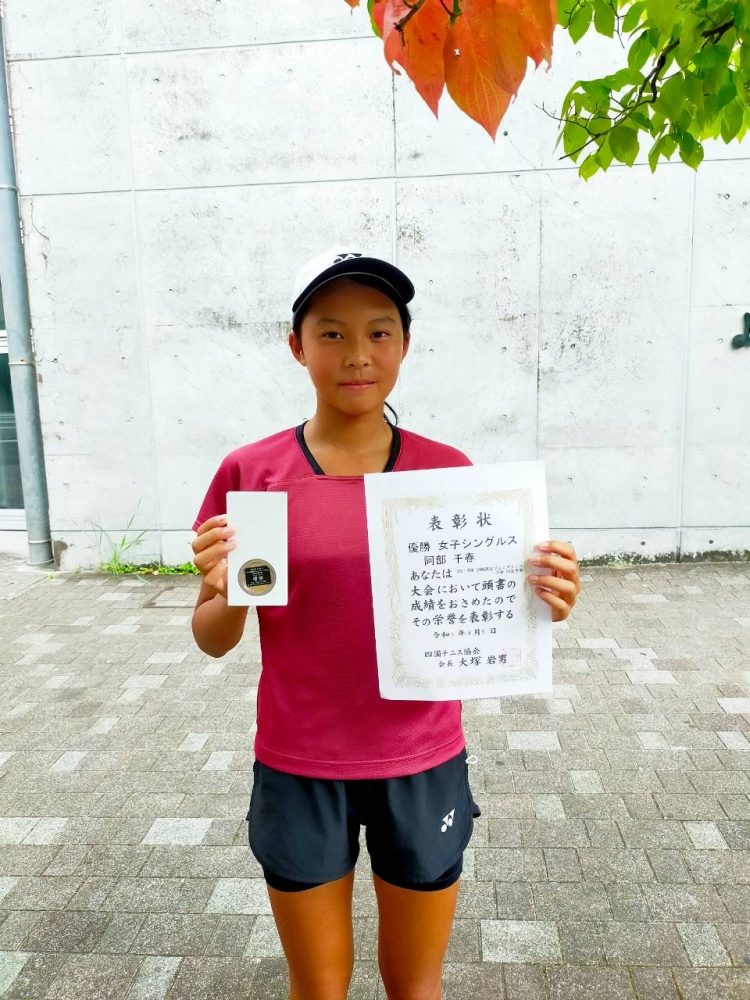 表彰状
優勝 女子シングルス
阿部 千春
あなたは
大会において頭書の
成績をおさめたので
その栄誉を表彰する
令和 年 月 日
四国テニス協会
会長 大塚 岩男
優勝